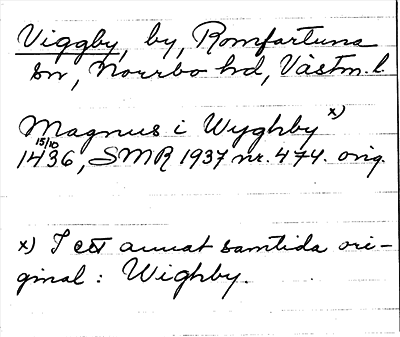 Viggby, by, Romfartuna
sn, Norrbo hd, Västm. l.
Magnus i Wyghby x)
15/10
1436, SMR 1937 nr. 474. orig.
x) I ett annat samtida ori-
ginal: Wighby.